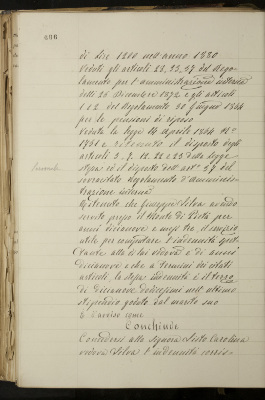 606
di Lire 1200 nell'anno 1880
Veduti gli articoli 23, 25, 27 del Rego-
lamento per l'amministrazione interna
delli 28 Dicembre 1872 e gli articoli
1 e 2 del Regolamento 30 Giugno 1864
per le pensioni di riposo
Veduta la legge 14 Aprile 1864 N.º
1731 e ritenuto il disposto degli
articoli 3, 7, 12, 22 e 23 della legge
stessa ed il disposto dell'art.º 27 del
succitato Regolamento d'amminis-
trazione interna
Ritenuto che Giuseppe Silva avendo
servito presso il Monte di Pietà per
anni diecinove e mesi tre il servizio
utile per computare l'indennità spet-
tante alla di lui vedova è di anni
diecinove e che a termini dei citati
articoli, la stessa indennità è il terzo
di diecinove dodicesimi dell'ultimo
stipendio goduto dal marito suo
È d'avviso come
Conchiude
Concedersi alla Signora Carolina
vedova Silva l'indennità corris-